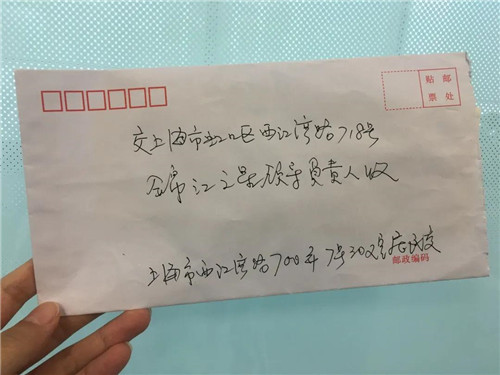 贴 邮
票 处
交上海市虹口区西江湾路718号
金锦江之星领导负责人收
上海市西江湾路700弄7号302室
邮政编码